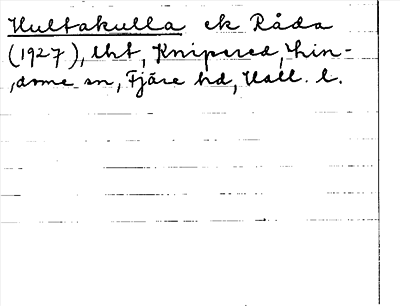 Hultakulla ek Råda
(1927), lht, Knipered, Lin-
dome sn, Fjäre hd, Hall. l.